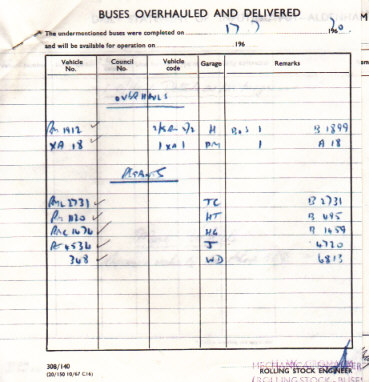 BUSES OVERHAULED AND DELIVERED
The undermentioned buses were completed on 17 7 1970.
and will be available for operation on 196
Vehicle No. Council No. Vehicle code Garage Remarks
OVERHAULS
RM 1912 H 1 B 1899
XA 18 1 XA 1 PM 1 A 18
REPAINTS
RML 2731 TC B 2731
RM 1120 HT B 495
RMC 1476 HG B 1459
R 4534 J 4720
348 WD 6813
308/140
(20/150 10/67 C16)
ROLLING STOCK ENGINEER
(ROLLING STOCK - BUSES